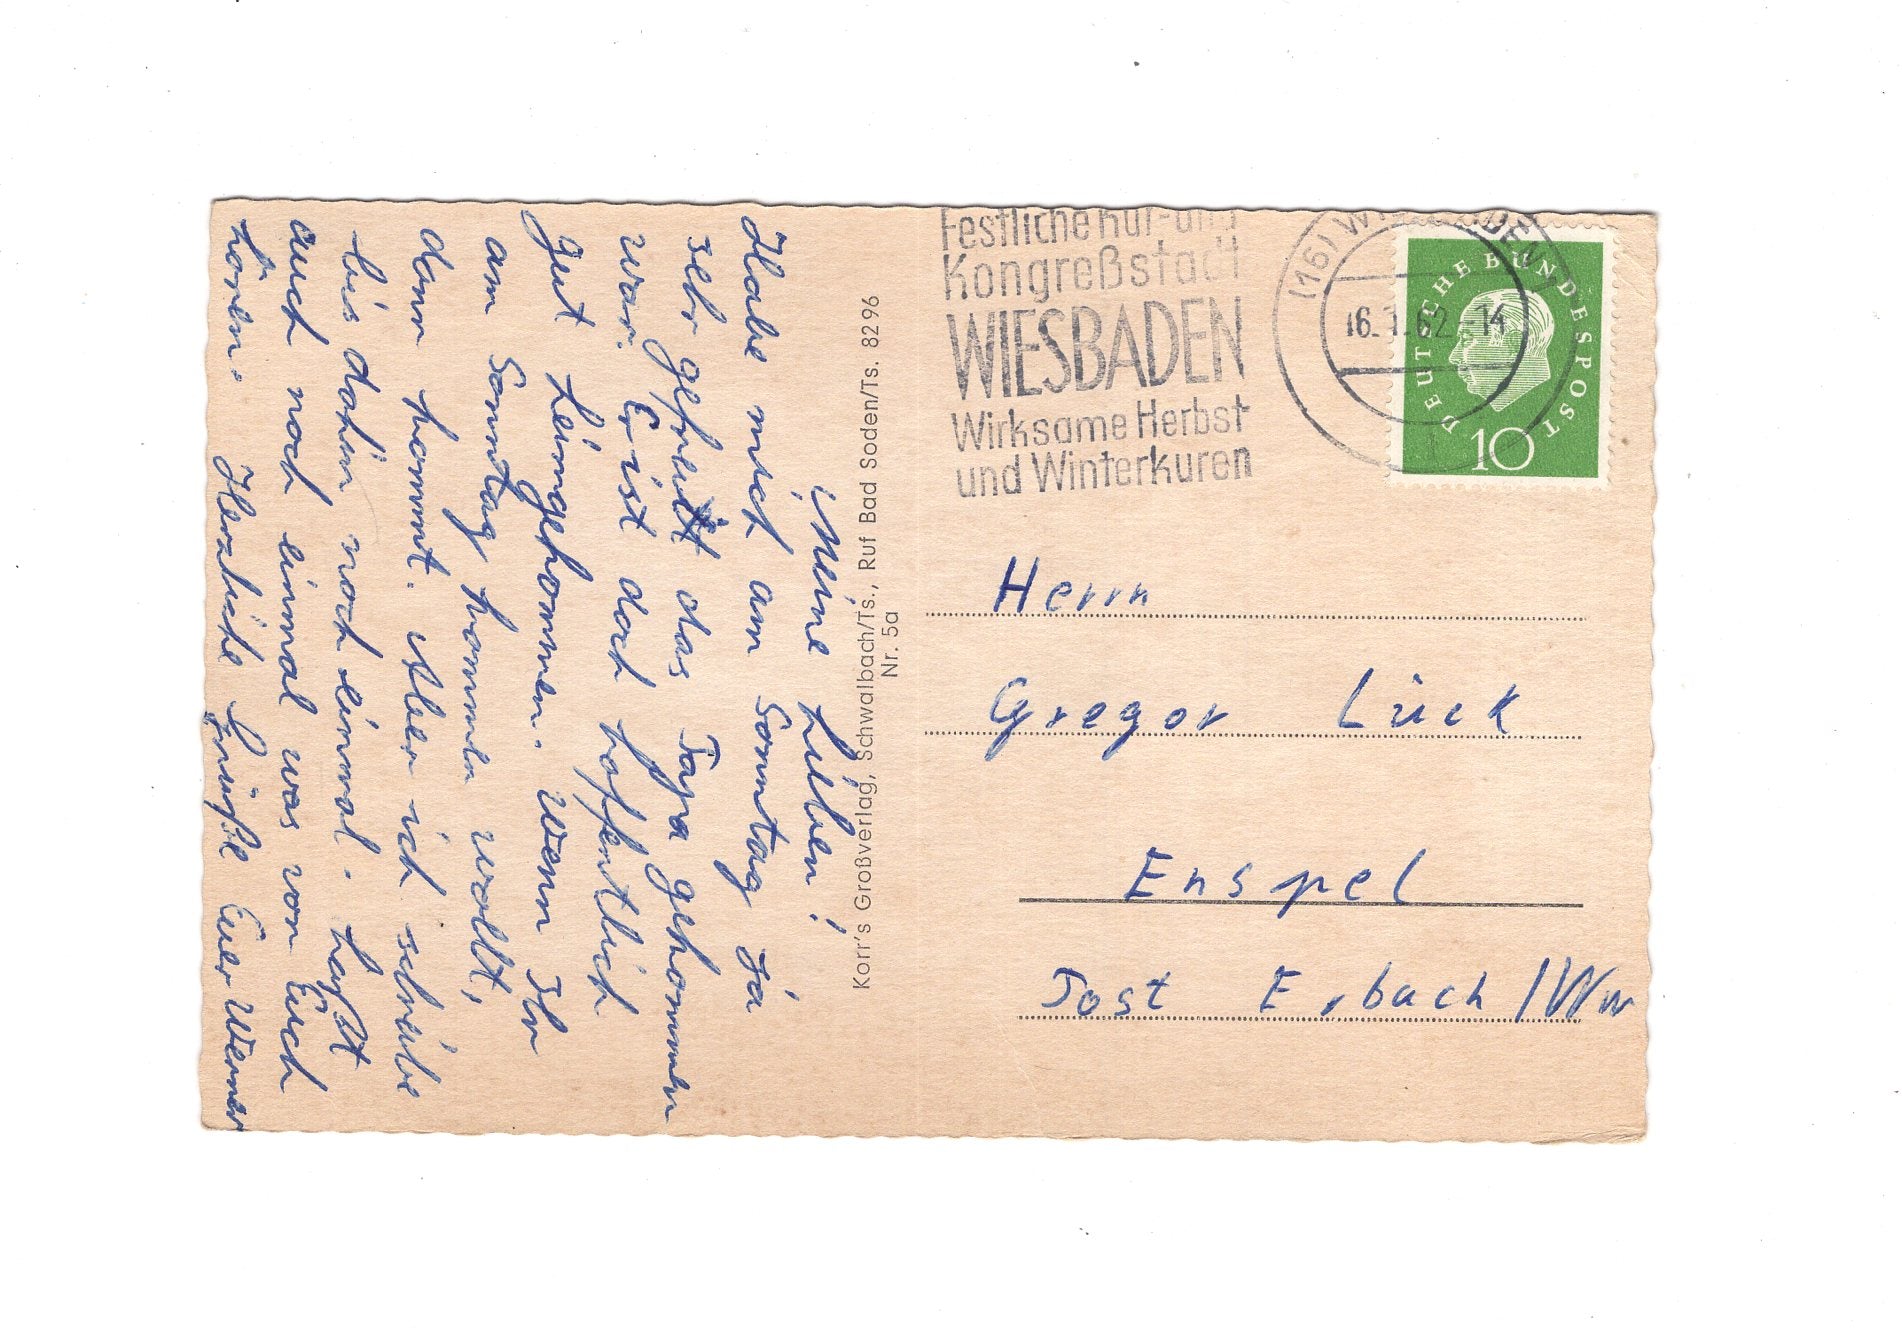 Meine Lieben!
Habe mich am Sonntag ja
sehr gefreut das Papa gekommen
war. Er ist doch hoffentlich
gut heimgekommen. Wenn Ihr
am Sonntag kommen wollt,
dann kommt. Aber ich schreibe
bis dahin noch einmal.
auch noch einmal was von Euch
hören. Herzliche Grüße Euer Werner
Korr's Großverlag, Schwalbach/Ts., Ruf Bad Soden/Ts. 8296
Nr. 5a
Festliche Kur- und
Kongreßstadt
WIESBADEN
Wirksame Herbst
und Winterkuren
(16) WIESBADEN 1
16.1.62.-14
DEUTSCHE BUNDESPOST
10
Herrn
Gregor Lück
Enspel
Post Erbach/Ww